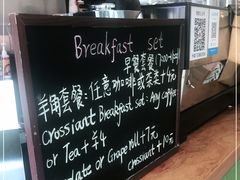 Breakfast set
早餐套餐(7:00-11:00)
羊角套餐:任意咖啡或茶类+4元
crossiant Breakfast set: Any coffee
or Tea+¥4
date or Grape roll+7元
crossiant+10元